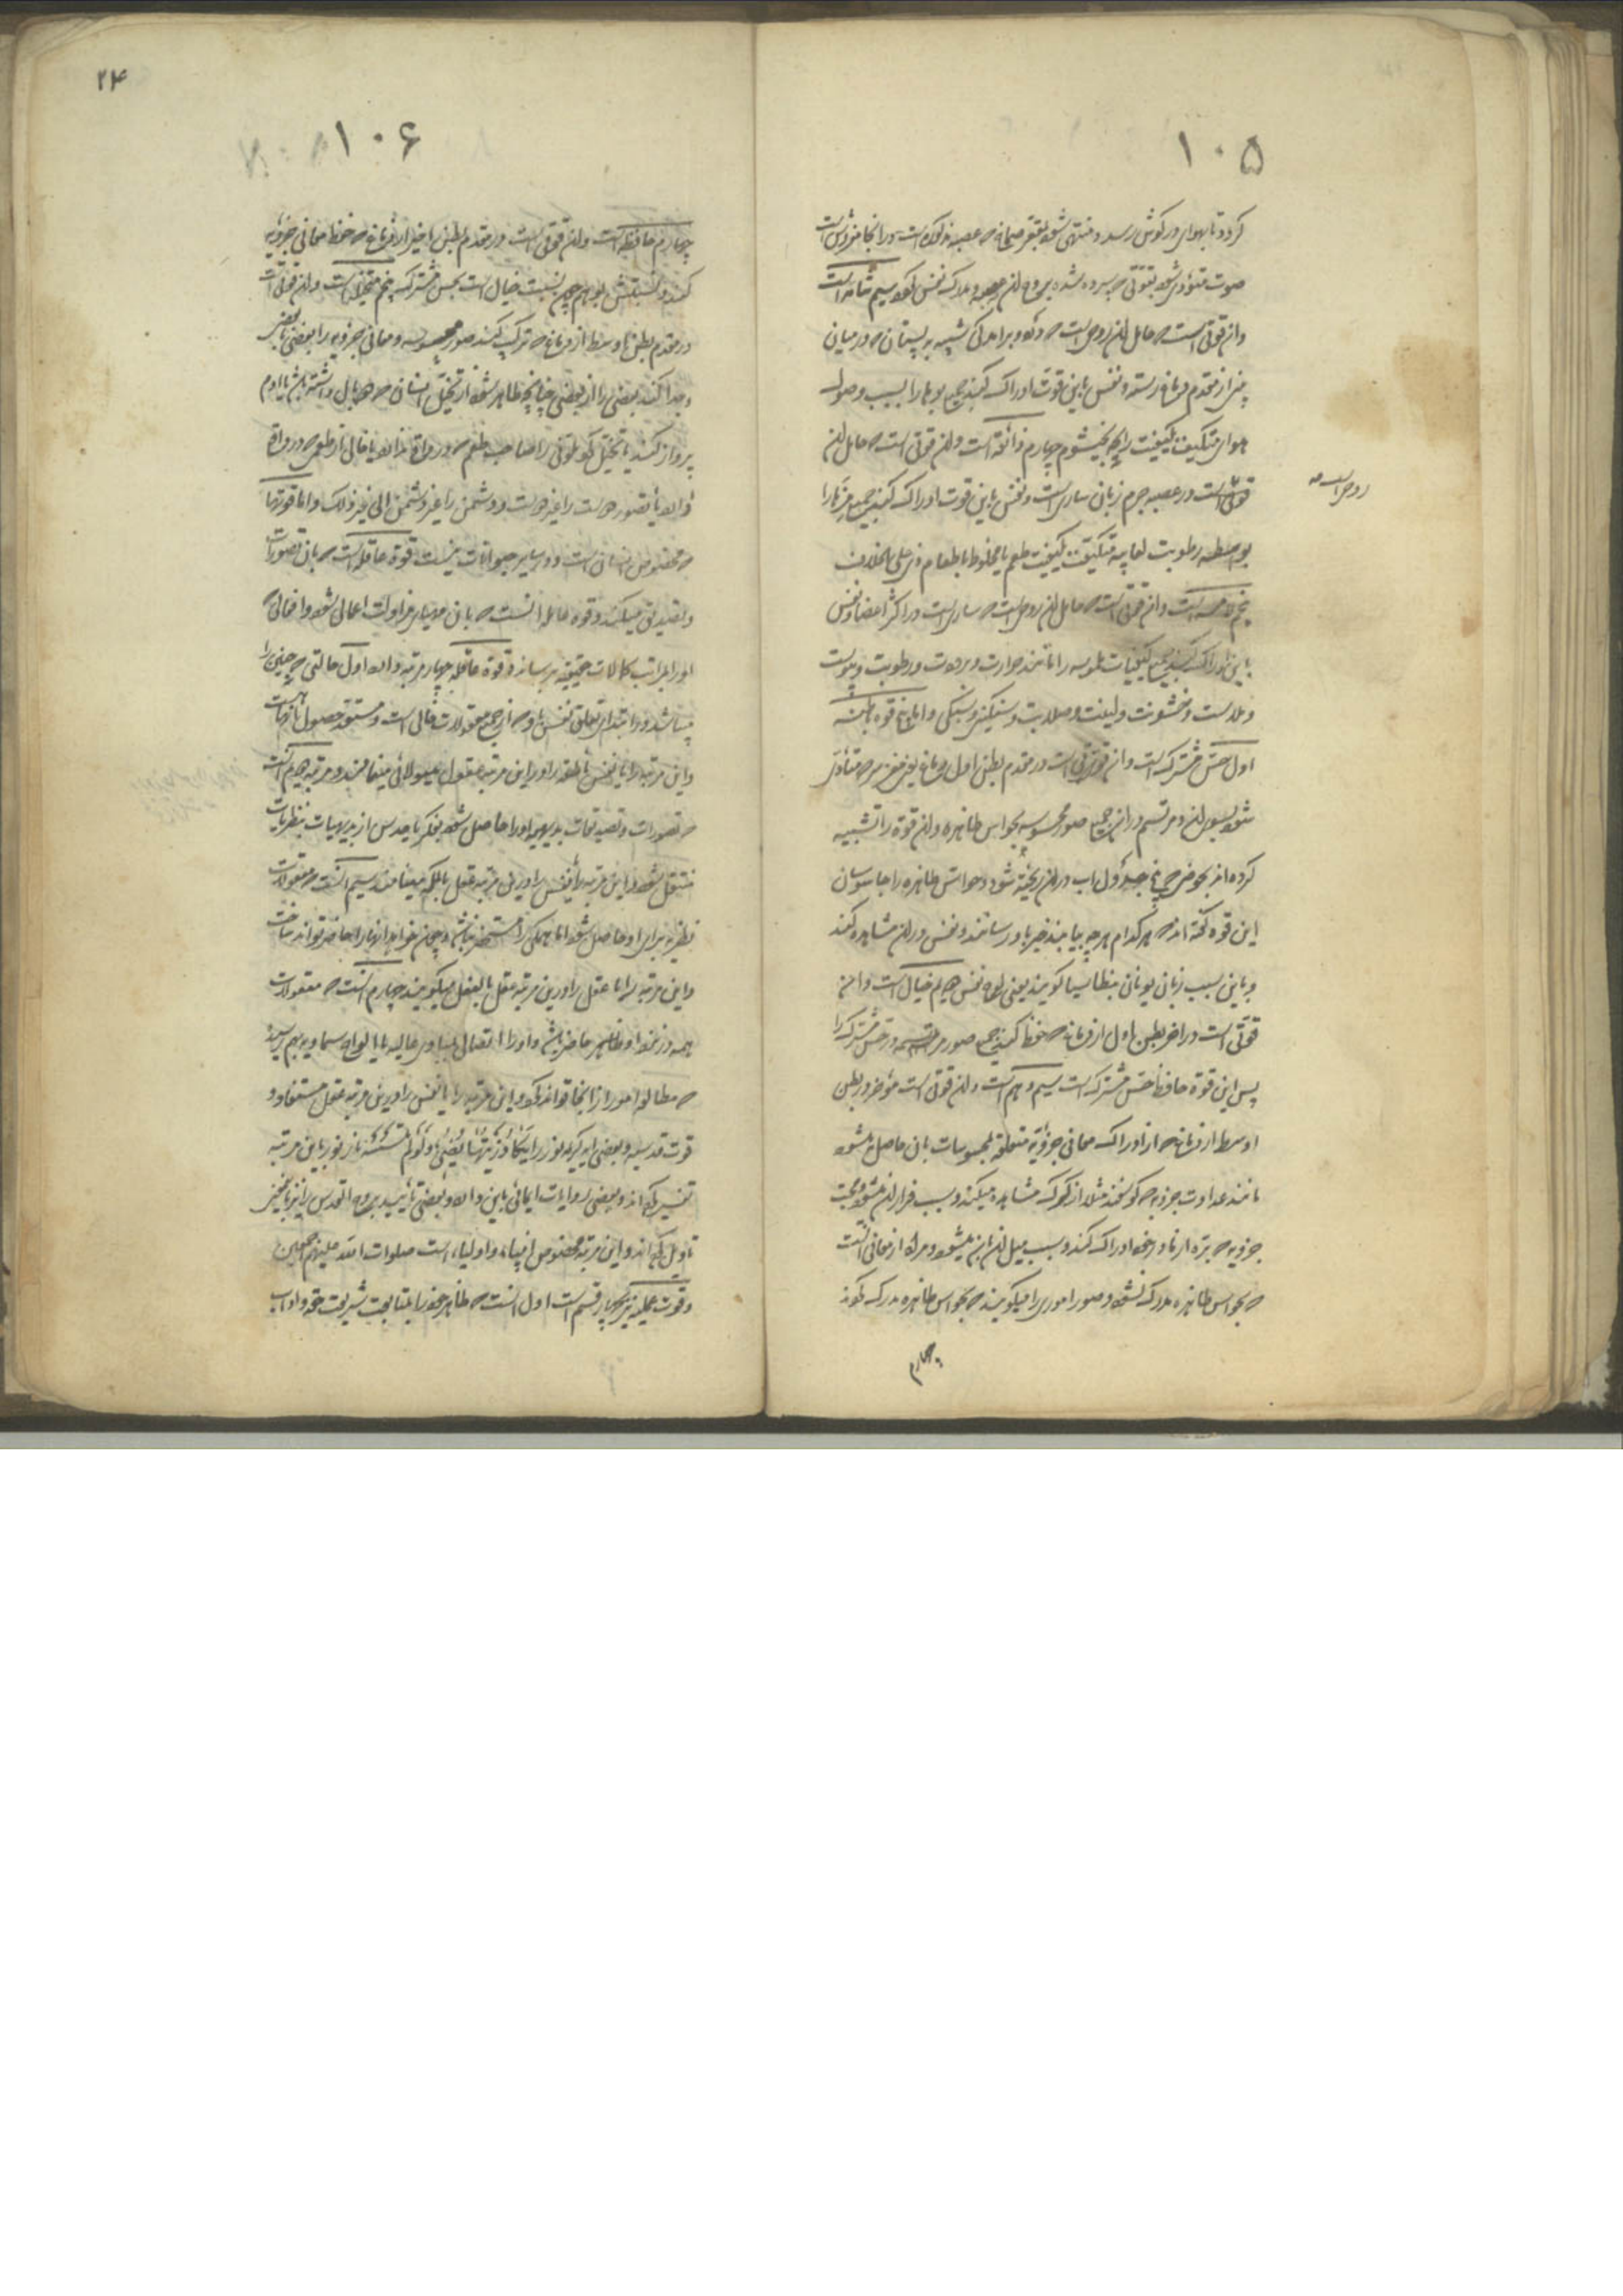 ۱۰۵
گردد تا بهوای در گوش رسد و منتهی شود بقعر صماخ که عصبه مذکوره است و در انجا مفروش است
صوت متودی شود بقوتی که سپرده شده بروح ان عصبه و مدرک نفس گردد سیم شامه است
وان قوتی است که حامل ان روحی است که در دو برامدگی شبیه به پستان که در میان
بینی از مقدم دماغ رسته و نفس باین قوت ادراک کند جمیع بوها را بسبب وصول
هوای متکیف بکیفیت رایحه بخیشوم چهارم ذائقه است وان قوتی است که حامل ان
روحی است که
قوتی است در عصبه جرم زبان ساری است و نفس باین قوت ادراک کند جمیع مزها را
بواسطه رطوبت لعابیه متکیف بکیفیت طعم یا مخلوط با طعام ذی طعم علی الخلاف
پنجم لامسه است وان قوتی است که حامل ان روحی است که ساری است در اکثر اعضا و نفس
باین ادراک کند جمیع کیفیات ملموسه را مانند حرارت و برودت و رطوبت و یبوست
و ملاست و خشونت و لینت و صلابت و سنگینی و سبکی و اما پنج قوه باطنه
اول حس مشترک است وان قوتی است در مقدم بطن اول دماغ یعنی مغز سر که متادی
شود بسوی ان و مرتسم در ان جمیع صور محسوسه بحواس ظاهره وان قوة را تشبیه
کرده اند بحوضی که پنج جدول اب در ان ریخته شود و حواس ظاهره را جاسوسان
این قوه گفته اند که هر کدام هر چه بیابند خبر باو رسانند و نفس در ان مشاهده کند
و باین سبب بزبان یونانی بنطاسیا گویند یعنی لوح نفس دویم خیال است وان
قوتی است در اخر بطن اول از دماغ که حفظ کند جمیع صور مرتسمه در حس مشترک را
پس این قوة حافظ حس مشترک است سیم وهم است وان قوتی است در مؤخر بطن
اوسط از دماغ که از ادراک معانی جزئیه متعلقه بمحسوسات بان حاصل میشود
مانند عداوت جزویه که گوسفند مثلا از گرگ مشاهده میکند و سبب فرار ان میشود و محبت
جزویه که بره از مادر خود ادراک کند و سبب میل ان باین میشود و مراد از معانی انست
که بحواس ظاهره مدرک نشود و صور اموری را میگویند که بحواس ظاهره مدرک گردند
چهارم
۲۴
۱۰۶
چهارم حافظه است وان قوتی است در مقدم بطن اخیر از دماغ که حفظ معانی جزئیه
کند و نسبتش بوهم چون نسبت خیال است بحس مشترک پنجم متخیله است وان قوتی است
در مقدم بطن اوسط از دماغ که ترکیب کند صور محسوسه و معانی جزویه را بعضی با بعضی
و جدا کند بعضی را از بعضی چنانچه ظاهر شود از تخیل انسان که دو بال داشته باشد یا ادم
پرواز کننده یا تخیل
و تصدیق میکند و قوه عامله انست که بان مهیای مزاولت اعمالی شود و افعالی که
او را بمراتب کمالات حقیقیه برساند و قوة عاقله چهار مرتبه دارد اول حالتی که جنین را
میباشد و در ابتدای تعلق نفس باو که از جمیع معقولات خالی است و مستعد حصول انهاست
واین مرتبه را یا نفس ناطقه را در این مرتبه عقل هیولانی مینامند و مرتبه دویم انست
که تصورات و تصدیقات بدیهیه او را حاصل شود بفکر یا حدس از بدیهیات بنظریات
منتقل شود و این مرتبه را یا نفس را درین مرتبه عقل بالملکه مینامند سیم انست که معقولات
نظریه برای او حاصل شود اما همگی را مستحضر نباشد و چون خواهد انها را حاضر تواند ساخت
واین مرتبه را یا عقل را درین مرتبه عقل بالفعل میگویند چهارم انست که معقولات
همه در نزد او ظاهر و حاضر باشد و او را اتصالی بمبادی عالیه یا الواح سماویه بهم رسیده
که مطالعه امور را از انجا تواند کرد و این مرتبه را یا نفس را درین مرتبه عقل مستفاد و
قوت قدسیه و بعضی ایه کریمه نور را یَکادُ زَیتُها یُضیءُ وَلَو لَم تَمسَسهُ نار نور باین مرتبه
تفسیر کرده اند و بعضی روایات ایمائی باین دارد و بعضی تأیید بروح القدس را نیز باین
تاویل کرده اند و این مرتبه مخصوص انبیاء و اولیاء است صلوات الله علیهم اجمعین
وقوت عملیه نیز بر چهار قسم است اول انست که ظاهر خود را بمتابعت شریعت حقه و اداب